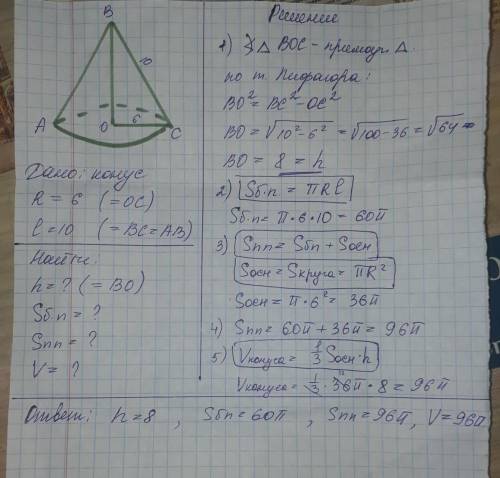 B
10
A
O
6
C
Дано: конус
R = 6 (=OC)
l = 10 (=BC=AB)
Найти:
h = ? (= BO)
Sб.п = ?
Sпп = ?
V = ?
Решение
1) △ BOC - прямоуг △.
по т. Пифагора:
BO² = BC² - OC²
BO = √10² - 6² = √100-36 = √64 =
BO = 8 = h
2) Sб.п = πRl
Sб.п = π·6·10 = 60π
3) Sпп = Sбп + Sосн
Sосн = Sкруга = πR²
Sосн = π·6² = 36π
4) Sпп = 60π + 36π = 96π
5) Vконуса = 1/3 Sосн·h
Vконуса = 1/3 · 36π · 8 = 96π
Ответ: h=8 , Sбп = 60π , Sпп = 96π, V = 96π